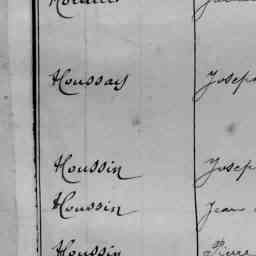 Houssay Joseph
Houssin Joseph
Houssin Jean
Houssin Pierre